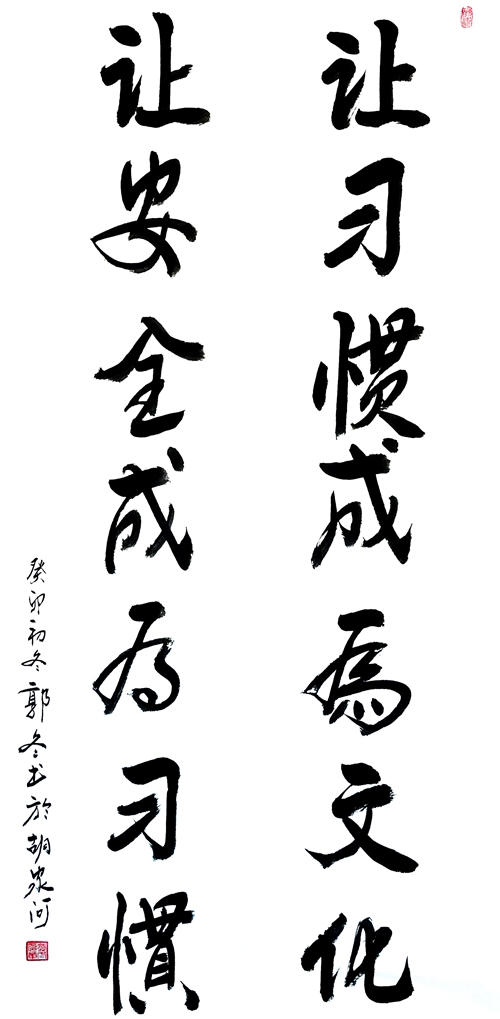 让习惯成為文化
让安全成为习慣
癸卯初冬郭冬书於胡河